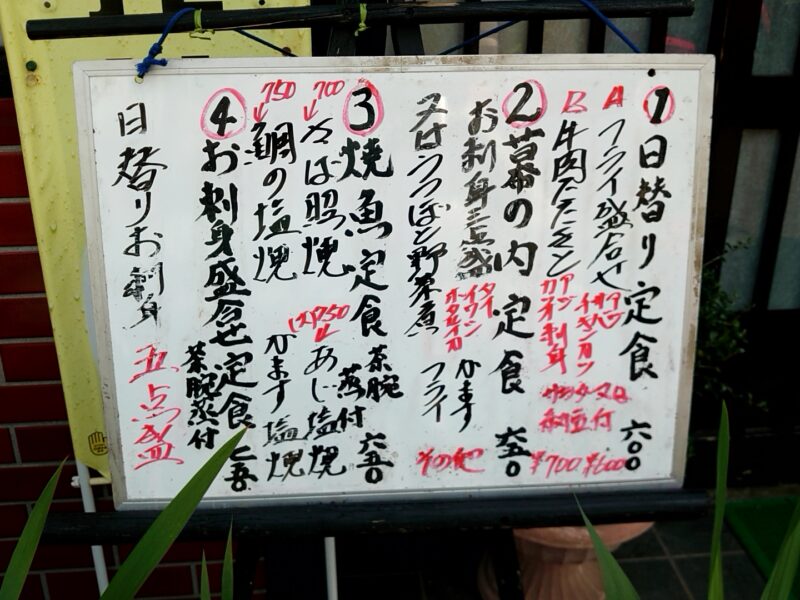 ① 日替り定食 六〇〇
A フライ盛合せ アジ イキ カツ ¥600
B 牛肉たたきと アジ カツオ 刺身 納豆付 ¥700
② 幕の内定食 六五〇
お刺身三点盛 タイ イワシ ホタルイカ かます
又はうつぼと野菜魚 フライ その他
③ 焼魚定食 茶腕蒸付 六五〇
700
さば照焼 あじ塩焼
750
鯛の塩焼 かます塩焼
④ お刺身盛合せ定食 七五〇
茶腕蒸付
日替りお刺身 五点盛